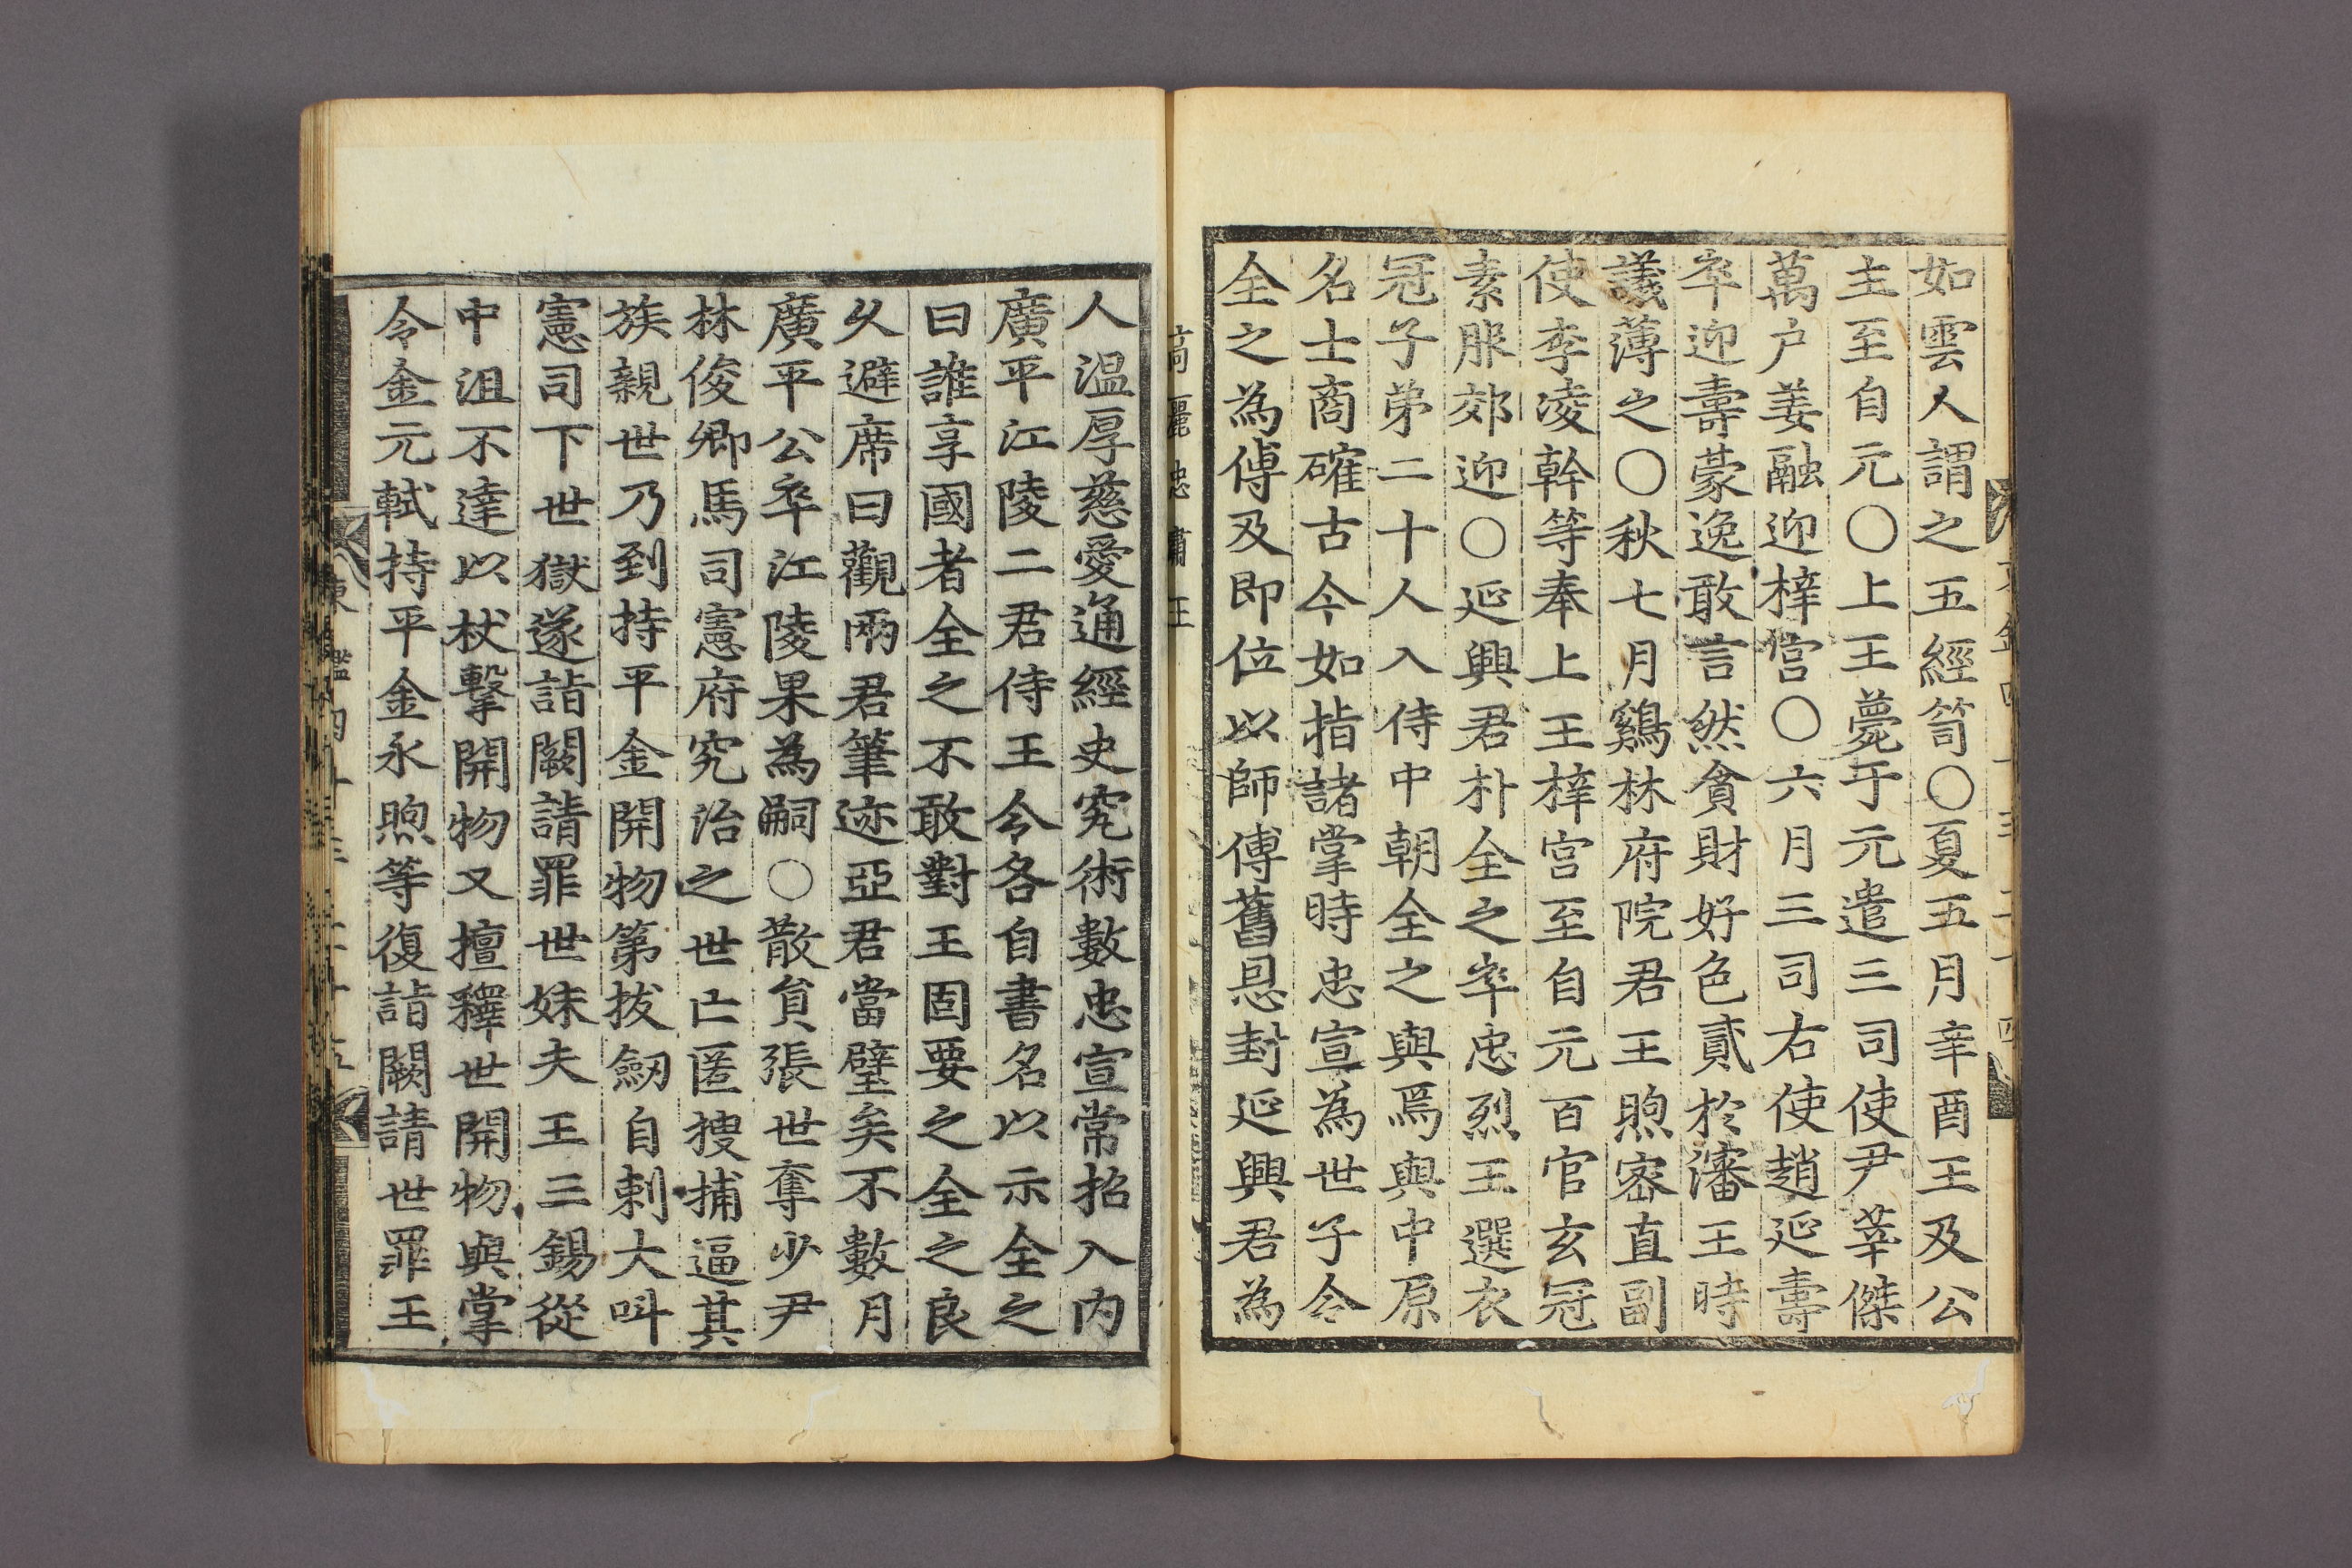 如雲人謂之五經笥〇夏五月辛酉王及公
主至自元〇上王薨于元遣三司使尹莘傑
萬户姜融迎梓宮〇六月三司右使趙延壽
卒迎壽蒙逸敢言然貪財好色貳於瀋王時
議薄之〇秋七月鷄林府院君王煦密直副
使李凌幹等奉上王梓宮至自元百官玄冠
素服郊迎〇延興君朴全之卒忠烈王選衣
冠子弟二十人入侍中朝全之與焉與中原
名士商確古今如指諸掌時忠宣為世子令
全之為傅及即位以師傅舊恩封延興君為
高麗忠肅王
人温厚慈愛通經史究術數忠宣常招入内
廣平江陵二君侍王令各自書名以示全之
曰誰享國者全之不敢對王固要之全之良
久避席曰觀兩君筆迹亞君當璧矣不數月
廣平公卒江陵果為嗣〇散貟張世奪少尹
林俊卿馬司憲府究治之世亡匿搜捕逼其
族親世乃到持平金開物第拔劒自刺大呌
憲司下世獄遂詣闕請罪世妹夫王三錫從
中沮不達以杖擊開物又擅釋世開物與掌
令金元軾持平金永煦等復詣闕請世罪王